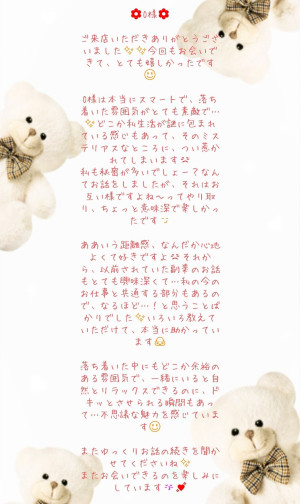 🌺O様🌺
ご来店いただきありがとうござ
いました✨✨今回もお会いで
きて、とても嬉しかったです
😊
O様は本当にスマートで、落ち
着いた雰囲気がとても素敵で…
✨どこか私生活が謎に包まれ
ている感じもあって、そのミス
テリアスなところに、つい惹か
れてしまいます
私も秘密が多いでしょー？なん
てお話をしましたが、それはお
互い様ですよね〜ってやり取
り、ちょっと意味深で楽しかっ
たです
ああいう距離感、なんだか心地
よくて好きですよ それか
ら、以前されていた副業のお話
もとても興味深くて…私の今の
お仕事と共通する部分もあるの
で、なるほど…！と思うことば
かりでした✨いろいろ教えて
いただけて、本当に助かってい
ます
落ち着いた中にもどこか余裕の
ある雰囲気で、一緒にいると自
然とリラックスできるのに、ド
キッとさせられる瞬間もあっ
て…不思議な魅力を感じていま
す😊
またゆっくりお話の続きを聞か
せてくださいね✨
またお会いできるのを楽しみに
しています💕